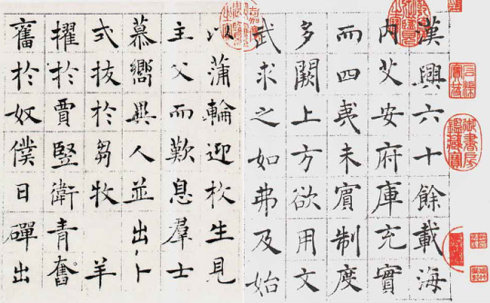 漢興六十餘載海
内艾安府庫充實
而四夷未賓制度
多闕上方欲用文
武求之如弗及始
以蒲輪迎枚生見
主父而歎息羣士
慕嚮異人並出卜
式拔於芻牧 羊
擢於賈豎衛青奮
奮於奴僕日磾出